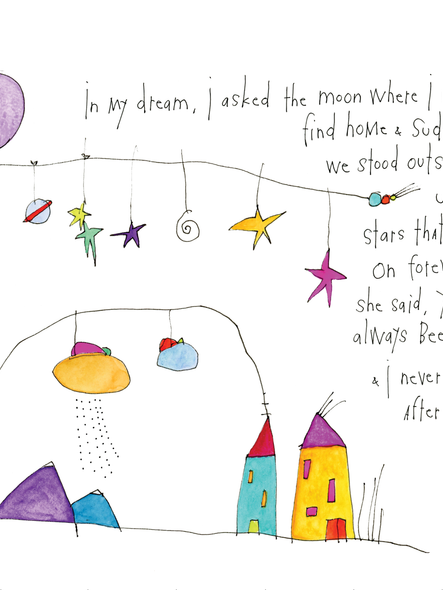 in my dream, i asked the moon where i
find home & Sud
we stood outs
stars that
on forev
she said,
always Bee
& i never
After